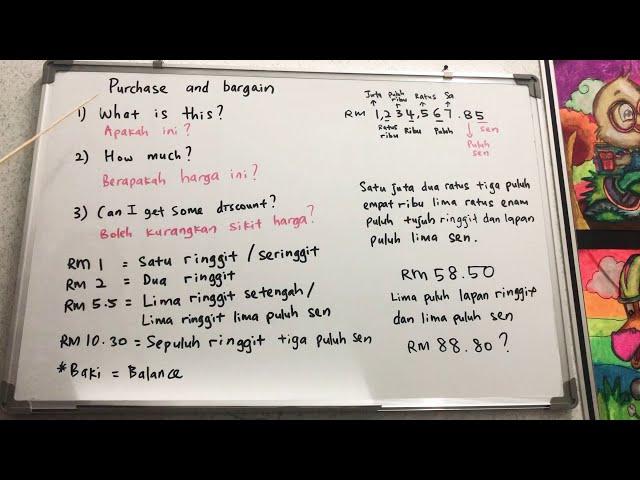 Purchase and bargain
1) What is this?
Apakah ini?
2) How much?
Berapakah harga ini?
3) Can I get some discount?
Boleh kurangkan sikit harga?
RM 1 = Satu ringgit / seringgit
RM 2 = Dua ringgit
RM 5.5 = Lima ringgit setengah/
Lima ringgit lima puluh sen
RM 10.30 = Sepuluh ringgit tiga puluh sen
*Baki = Balance
Juta Puluh ribu Ratus Sa
RM 1,234,567.85
Ratus ribu Ribu Puluh Puluh sen sen
Satu juta dua ratus tiga puluh
empat ribu lima ratus enam
puluh tujuh ringgit dan lapan
puluh lima sen.
RM 58.50
Lima puluh lapan ringgit
dan lima puluh sen
RM 88.80?